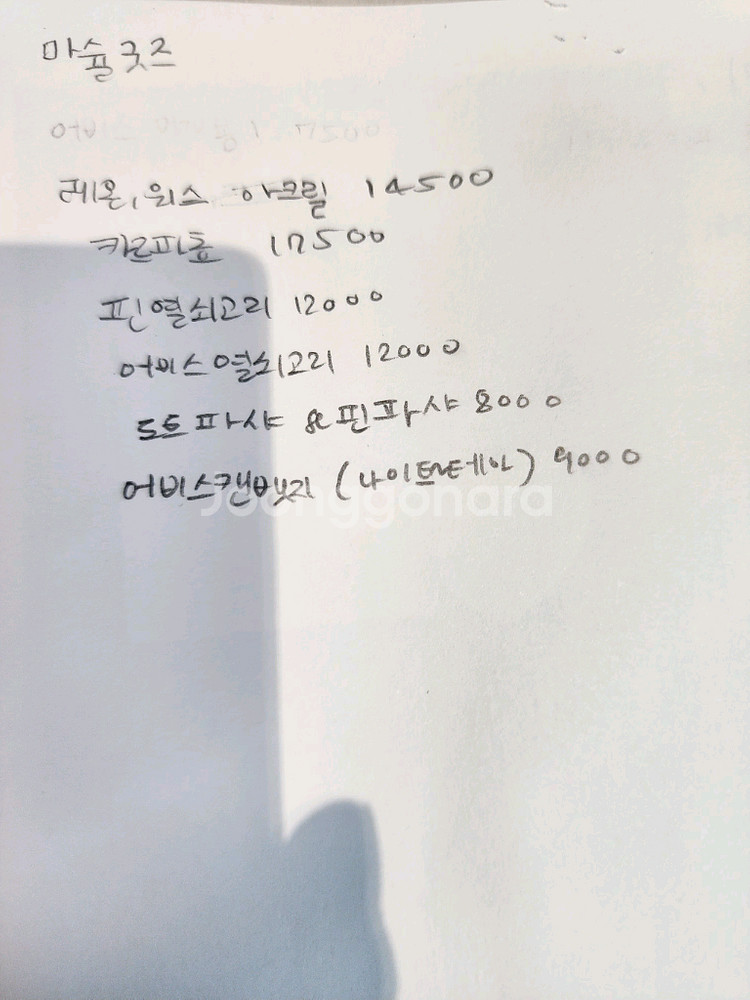 마슐굿즈
어비스 17500
레온, 위스 아크릴 14500
카르파쵸 17500
핀열쇠고리 12000
어비스열쇠고리 12000
도트파샤 & 핀파샤 8000
어비스캔뱃지 (나이트테이) 9000
Joonggonara